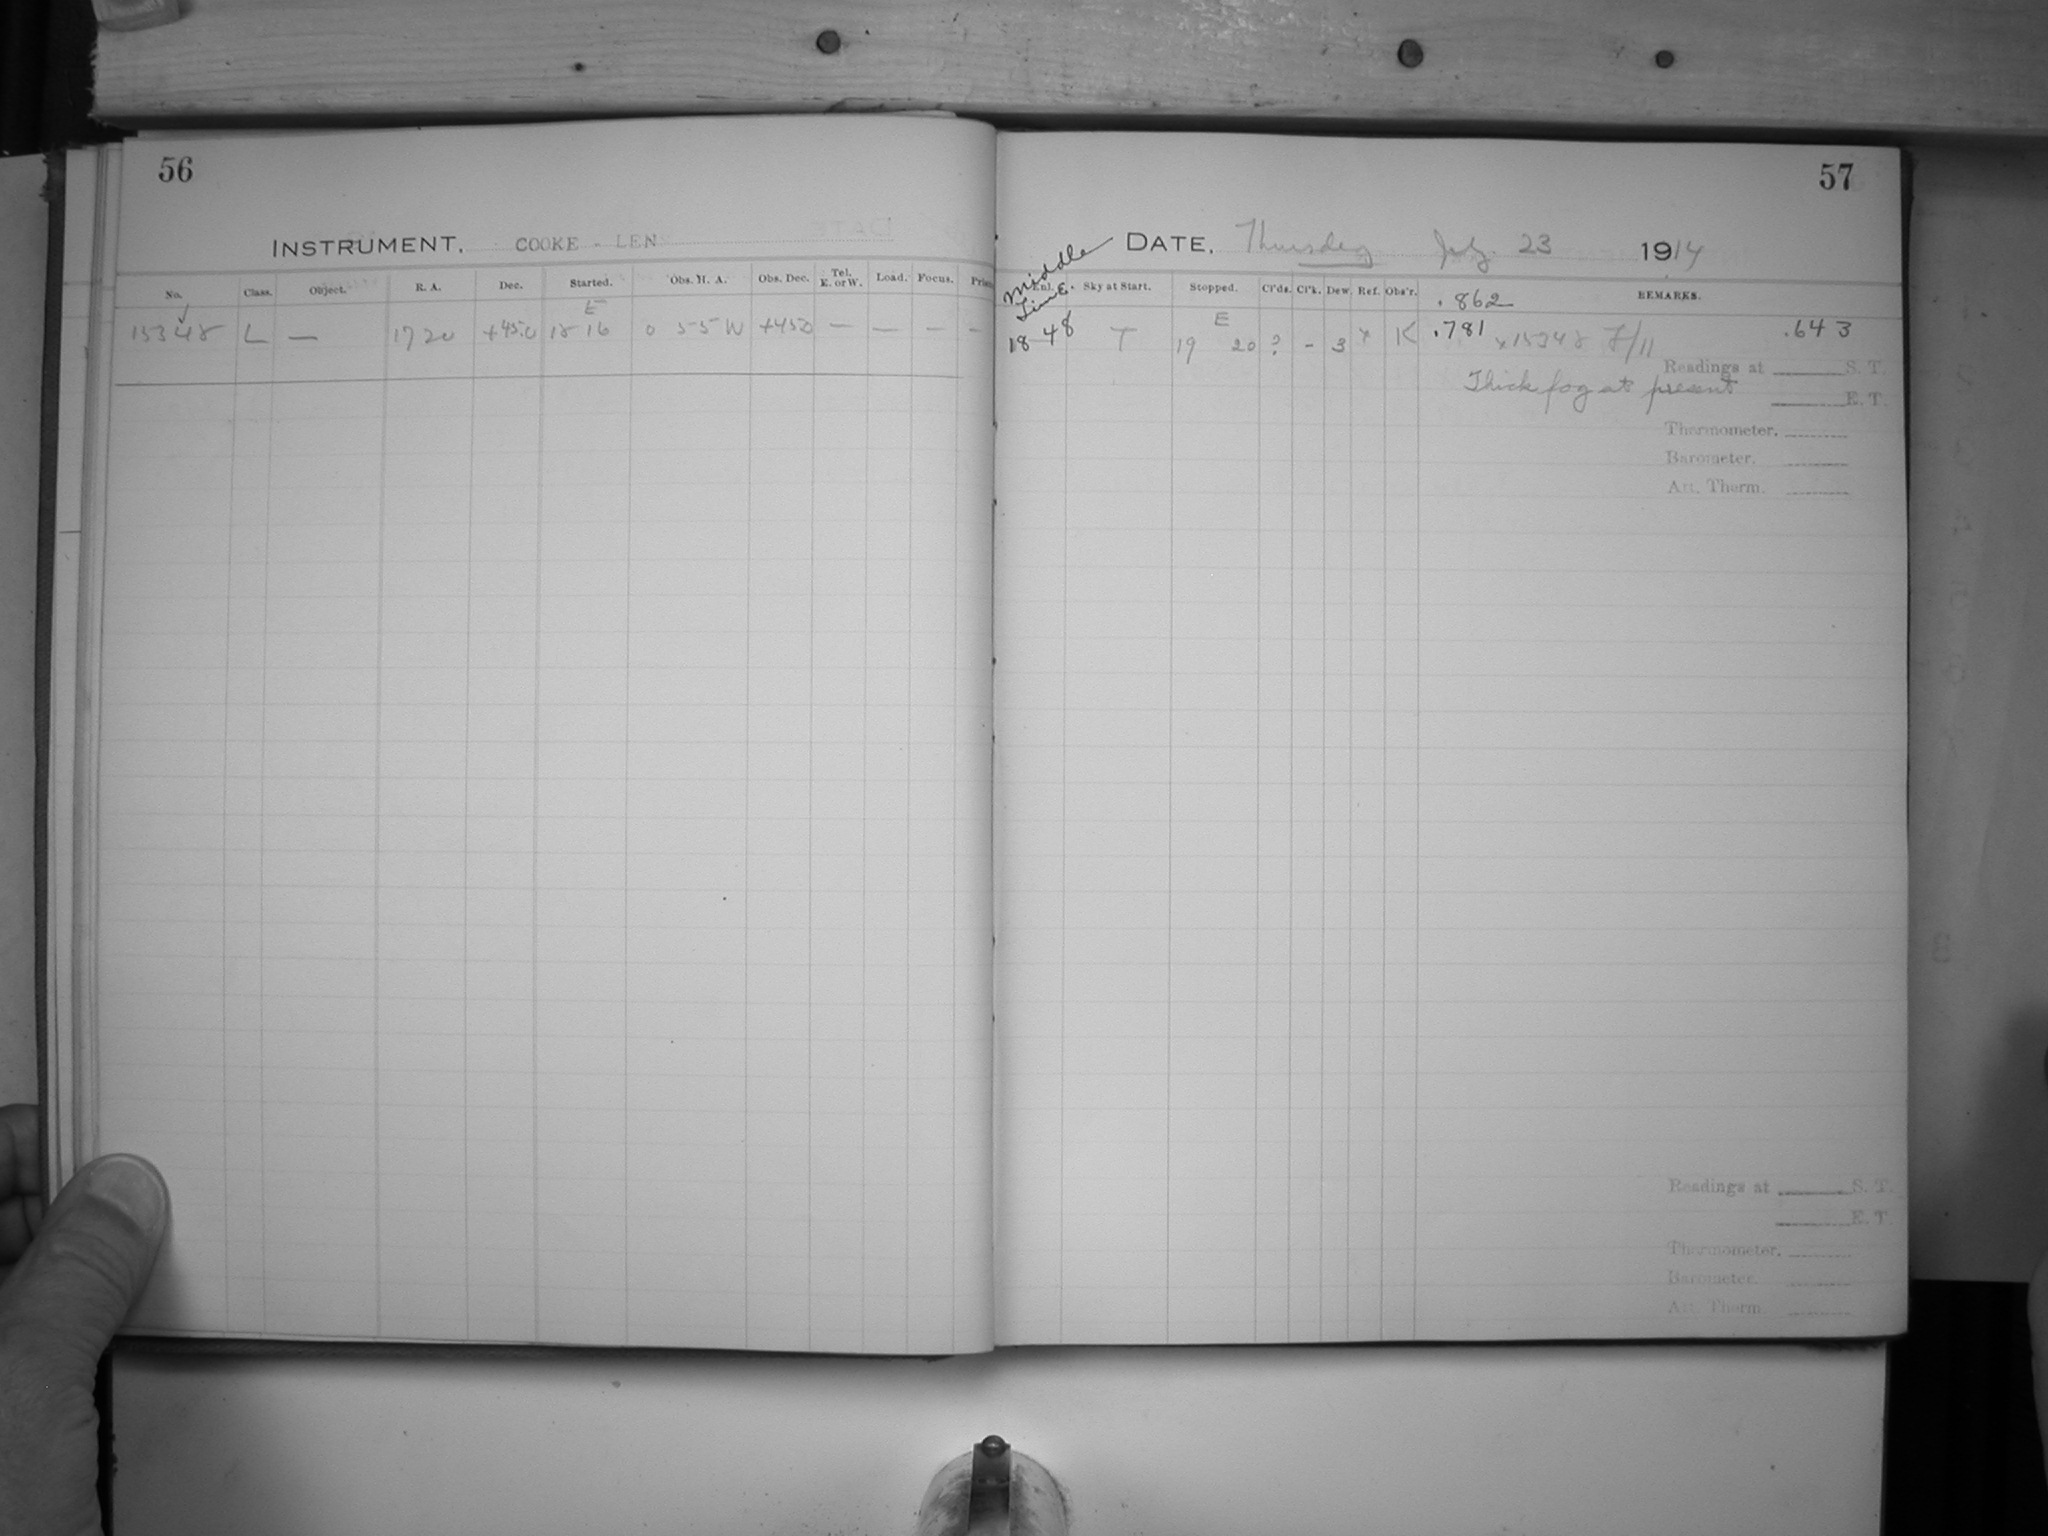 56
INSTRUMENT. COOKE - LEN
No. Class. Object. R. A. Dec. Started. Obs. H. A. Obs. Dec. Tel. E. or W. Load. Focus.
E
15348 L — 17 20 +45.0 18 16 0 55 W +45.0 — — — —
57
DATE. Thursday July 23 1914
Middle
Time E.
Sky at Start. Stopped. Cl'ds. Cl'k. Dew. Ref. Obs'r. .862 REMARKS.
E
18 48 T 19 20 ? - 3 x K .781 x15348 F/11 .643
Readings at S. T.
Thick fog at present
E. T.
Thermometer.
Barometer.
Att. Therm.
Readings at S. T.
E. T.
Thermometer.
Barometer.
Att. Therm.